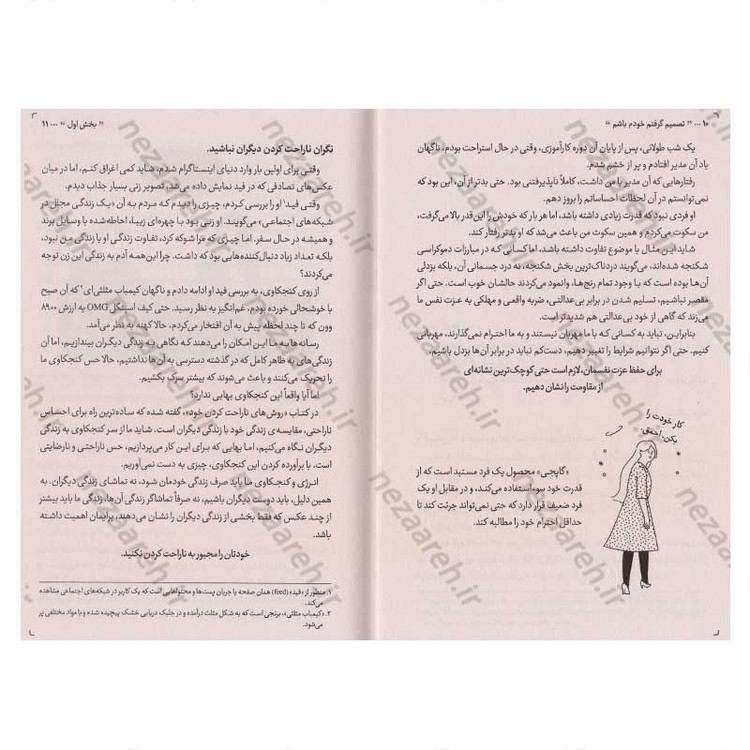 ۱۰ ... " تصمیم گرفتم خودم باشم "
یک شب طولانی، پس از پایان آن دوره کارآموزی، وقتی در حال استراحت بودم، ناگهان
یاد آن مدیر افتادم و پر از خشم شدم.
رفتارهایی که آن مدیر با من داشت، کاملاً ناپذیرفتنی بود. حتی بدتر از آن، این بود که
نمی‌توانستم در آن لحظات احساساتم را بروز دهم.
او فردی نبود که قدرت زیادی داشته باشد، اما هر بار که خودش را این‌قدر بالا می‌گرفت،
من سکوت می‌کردم و همین سکوت من باعث می‌شد که او بدتر رفتار کند.
شاید این مثال با موضوع تفاوت داشته باشد، اما کسانی که در مبارزات دموکراسی
شکنجه شده‌اند، می‌گویند دردناک‌ترین بخش شکنجه، نه درد جسمانی آن، بلکه بزدلی
آن‌ها بوده است که با وجود تمام رنج‌ها، وانمود می‌کردند حالشان خوب است. حتی اگر
مقصر نباشیم، تسلیم شدن در برابر بی‌عدالتی، ضربه واقعی و مهلکی به عزت نفس ما
می‌زند که گاهی از خود بی‌عدالتی هم شدیدتر است.
بنابراین، نباید به کسانی که با ما مهربان نیستند و به ما احترام نمی‌گذارند، مهربانی
کنیم. حتی اگر نتوانیم شرایط را تغییر دهیم، دست‌کم نباید در برابر آن‌ها بزدل باشیم.
برای حفظ عزت نفسمان، لازم است حتی کوچک‌ترین نشانه‌ای
از مقاومت را نشان دهیم.
کار خودت را
بکن، احمق.
«گاپجی» محصول یک فرد مستبد است که از
قدرت خود سوءاستفاده می‌کند، و در مقابل او یک
فرد ضعیف قرار دارد که حتی نمی‌تواند جرئت کند تا
حداقل احترام خود را مطالبه کند.
" بخش اول " ... ۱۱
نگران ناراحت کردن دیگران نباشید.
وقتی برای اولین بار وارد دنیای اینستاگرام شدم، شاید کمی اغراق کنم، اما در میان
عکس‌های تصادفی که در فید نمایش داده می‌شد، تصویر زنی بسیار جذاب دیدم.
وقتی فید۱ او را بررسی کردم، چیزی را دیدم که مردم به آن «یک زندگی مجلل در
شبکه‌های اجتماعی» می‌گویند. او زنی بود با چهره‌ای زیبا، احاطه‌شده با وسایل برند
و همیشه در حال سفر. اما چیزی که مرا شوکه کرد، تفاوت زندگی او با زندگی من نبود،
بلکه تعداد زیاد دنبال‌کننده‌هایی بود که داشت. چرا این‌همه آدم به زندگی این زن توجه
می‌کردند؟
از روی کنجکاوی، به بررسی فید او ادامه دادم و ناگهان کیمباب مثلثی‌ای۲ که آن صبح
با خوشحالی خورده بودم، غم‌انگیز به نظر رسید. حتی کیف استنکل OMG به ارزش ۸۹۰۰
وون که تا چند لحظه پیش به آن افتخار می‌کردم، حالا کهنه به نظر می‌آمد.
رسانه‌ها به ما این امکان را می‌دهند که نگاهی به زندگی دیگران بیندازیم، اما آن
زندگی‌های به ظاهر کامل که در گذشته دسترسی به آن‌ها نداشتیم، حالا حس کنجکاوی ما
را تحریک می‌کنند و باعث می‌شوند که بیشتر سرک بکشیم.
اما آیا واقعاً این کنجکاوی بهایی ندارد؟
در کتاب «روش‌های ناراحت کردن خود»، گفته شده که ساده‌ترین راه برای احساس
ناراحتی، مقایسه‌ی زندگی خود با زندگی دیگران است. شاید ما از سر کنجکاوی به زندگی
دیگران نگاه می‌کنیم، اما بهایی که برای این کار می‌پردازیم، حس ناراحتی و نارضایتی
است. با برآورده کردن این کنجکاوی، چیزی به دست نمی‌آوریم.
انرژی و کنجکاوی ما باید صرف زندگی خودمان شود، نه تماشای زندگی دیگران. به
همین دلیل، باید دوست دیگران باشیم، نه صرفاً تماشاگر زندگی آن‌ها، زندگی ما باید بیشتر
از چند عکس که فقط بخشی از زندگی دیگران را نشان می‌دهند، برایمان اهمیت داشته
باشد.
خودتان را مجبور به ناراحت کردن نکنید.
۱. منظور از «فید» (feed) همان صفحه یا جریان پست‌ها و محتواهایی است که یک کاربر در شبکه‌های اجتماعی مشاهده
می‌کند.
۲. «کیمباب مثلثی»، برنجی است که به شکل مثلث درآمده و در جلبک دریایی خشک پیچیده شده و با مواد مختلفی پر
می‌شود.
nezaareh.ir